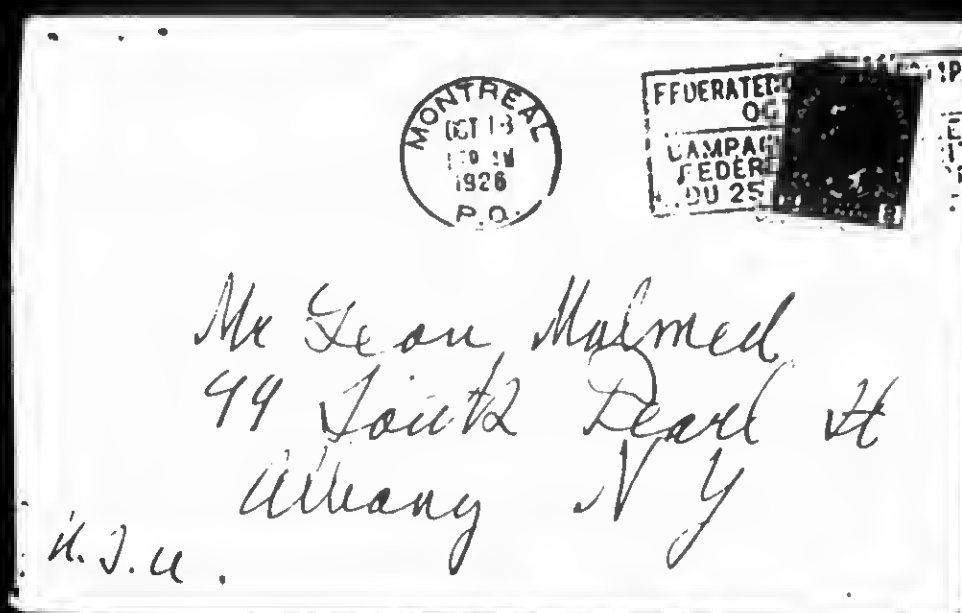 MONTREAL
OCT 18
1926
P.Q.
FEDERATED
CAMPAI
FEDER
DU 25
Mr Leon Malmed
99 South Pearl St
Albany N Y
U.S.A.